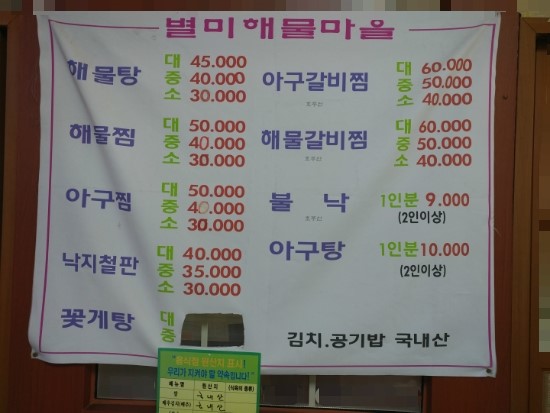 별미해물마을
해물탕 대 45.000
중 40.000
소 30.000
해물찜 대 50.000
중 40.000
소 30.000
아구찜 대 50.000
중 40.000
소 30.000
낙지철판 대 40.000
중 35.000
소 30.000
꽃게탕 대
중
아구갈비찜 대 60.000
중 50.000
소 40.000
해물갈비찜 대 60.000
중 50.000
소 40.000
불 낙 1인분 9.000
(2인이상)
아구탕 1인분 10.000
(2인이상)
김치.공기밥 국내산
우리가 지켜야 할 약속입니다!
메뉴명 원산지
쌀 국내산
국내산